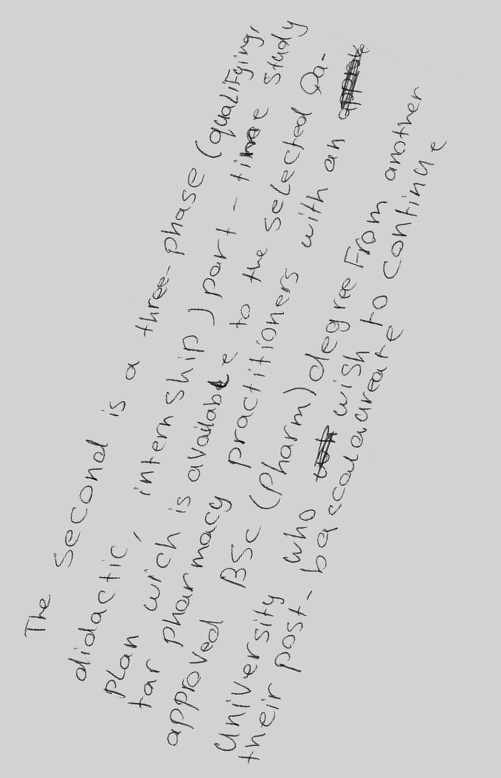 The second is a three-phase (qualifying,
didactic, internship) part-time study
plan wich is available to the selected Qa-
tar pharmacy practitioners with an
approved BSc (Pharm) degree from another
University who wish to continue
their post-baccalaureate